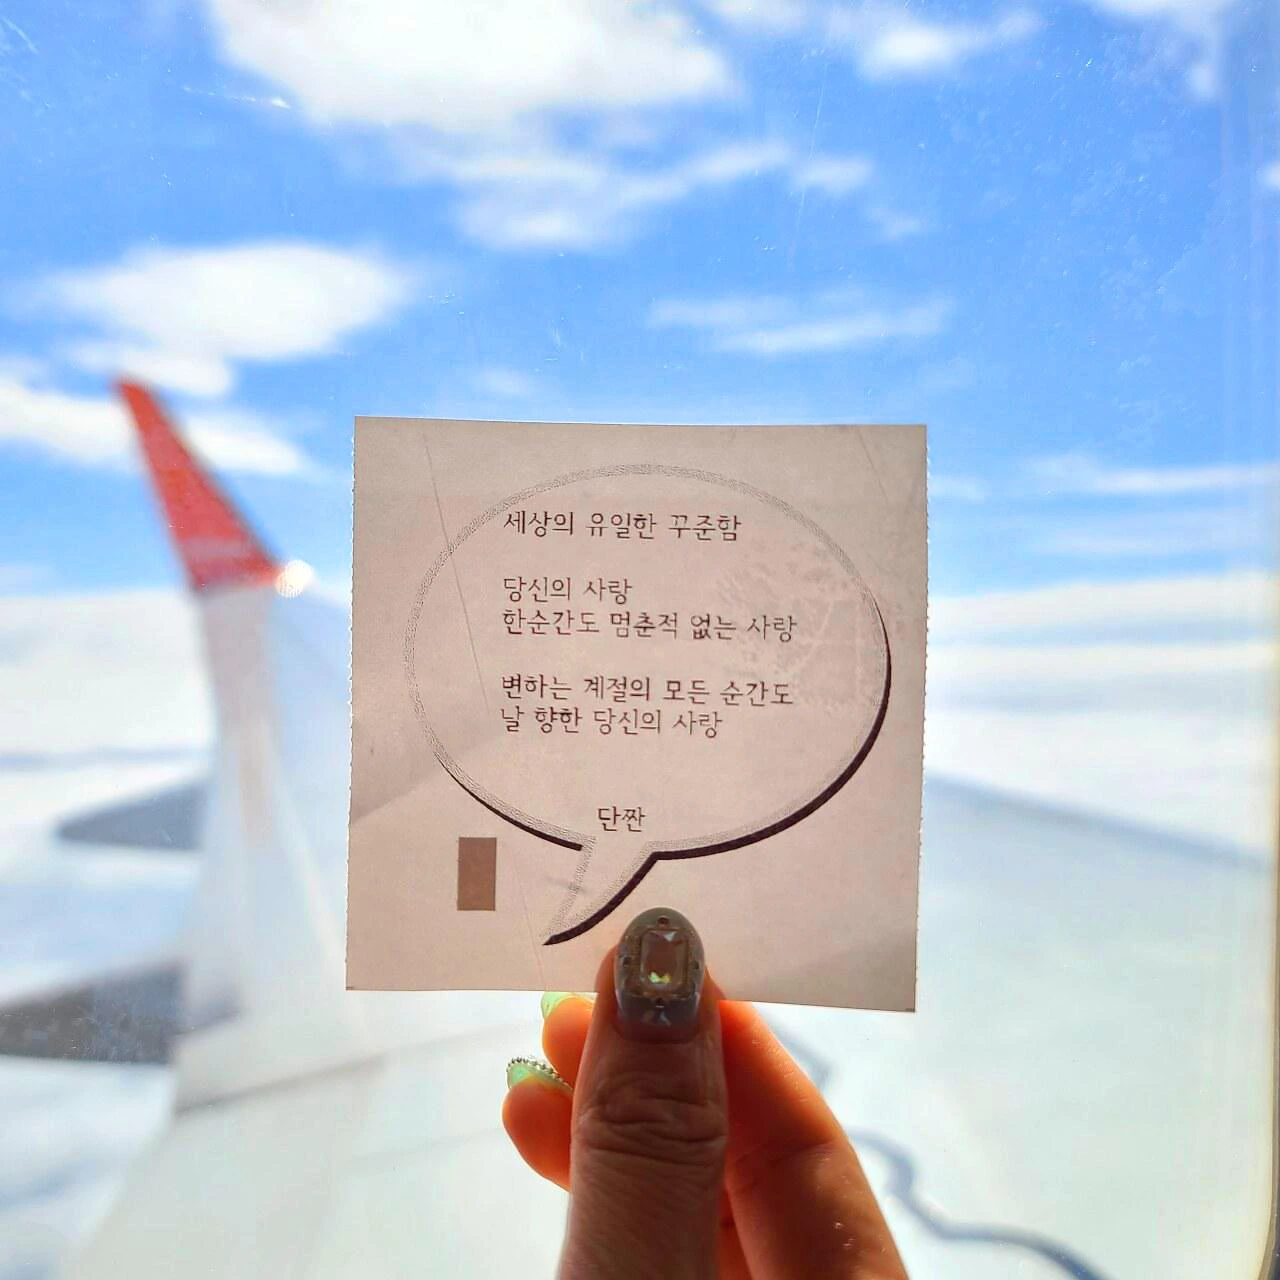 세상의 유일한 꾸준함
당신의 사랑
한순간도 멈춘적 없는 사랑
변하는 계절의 모든 순간도
날 향한 당신의 사랑
단짠